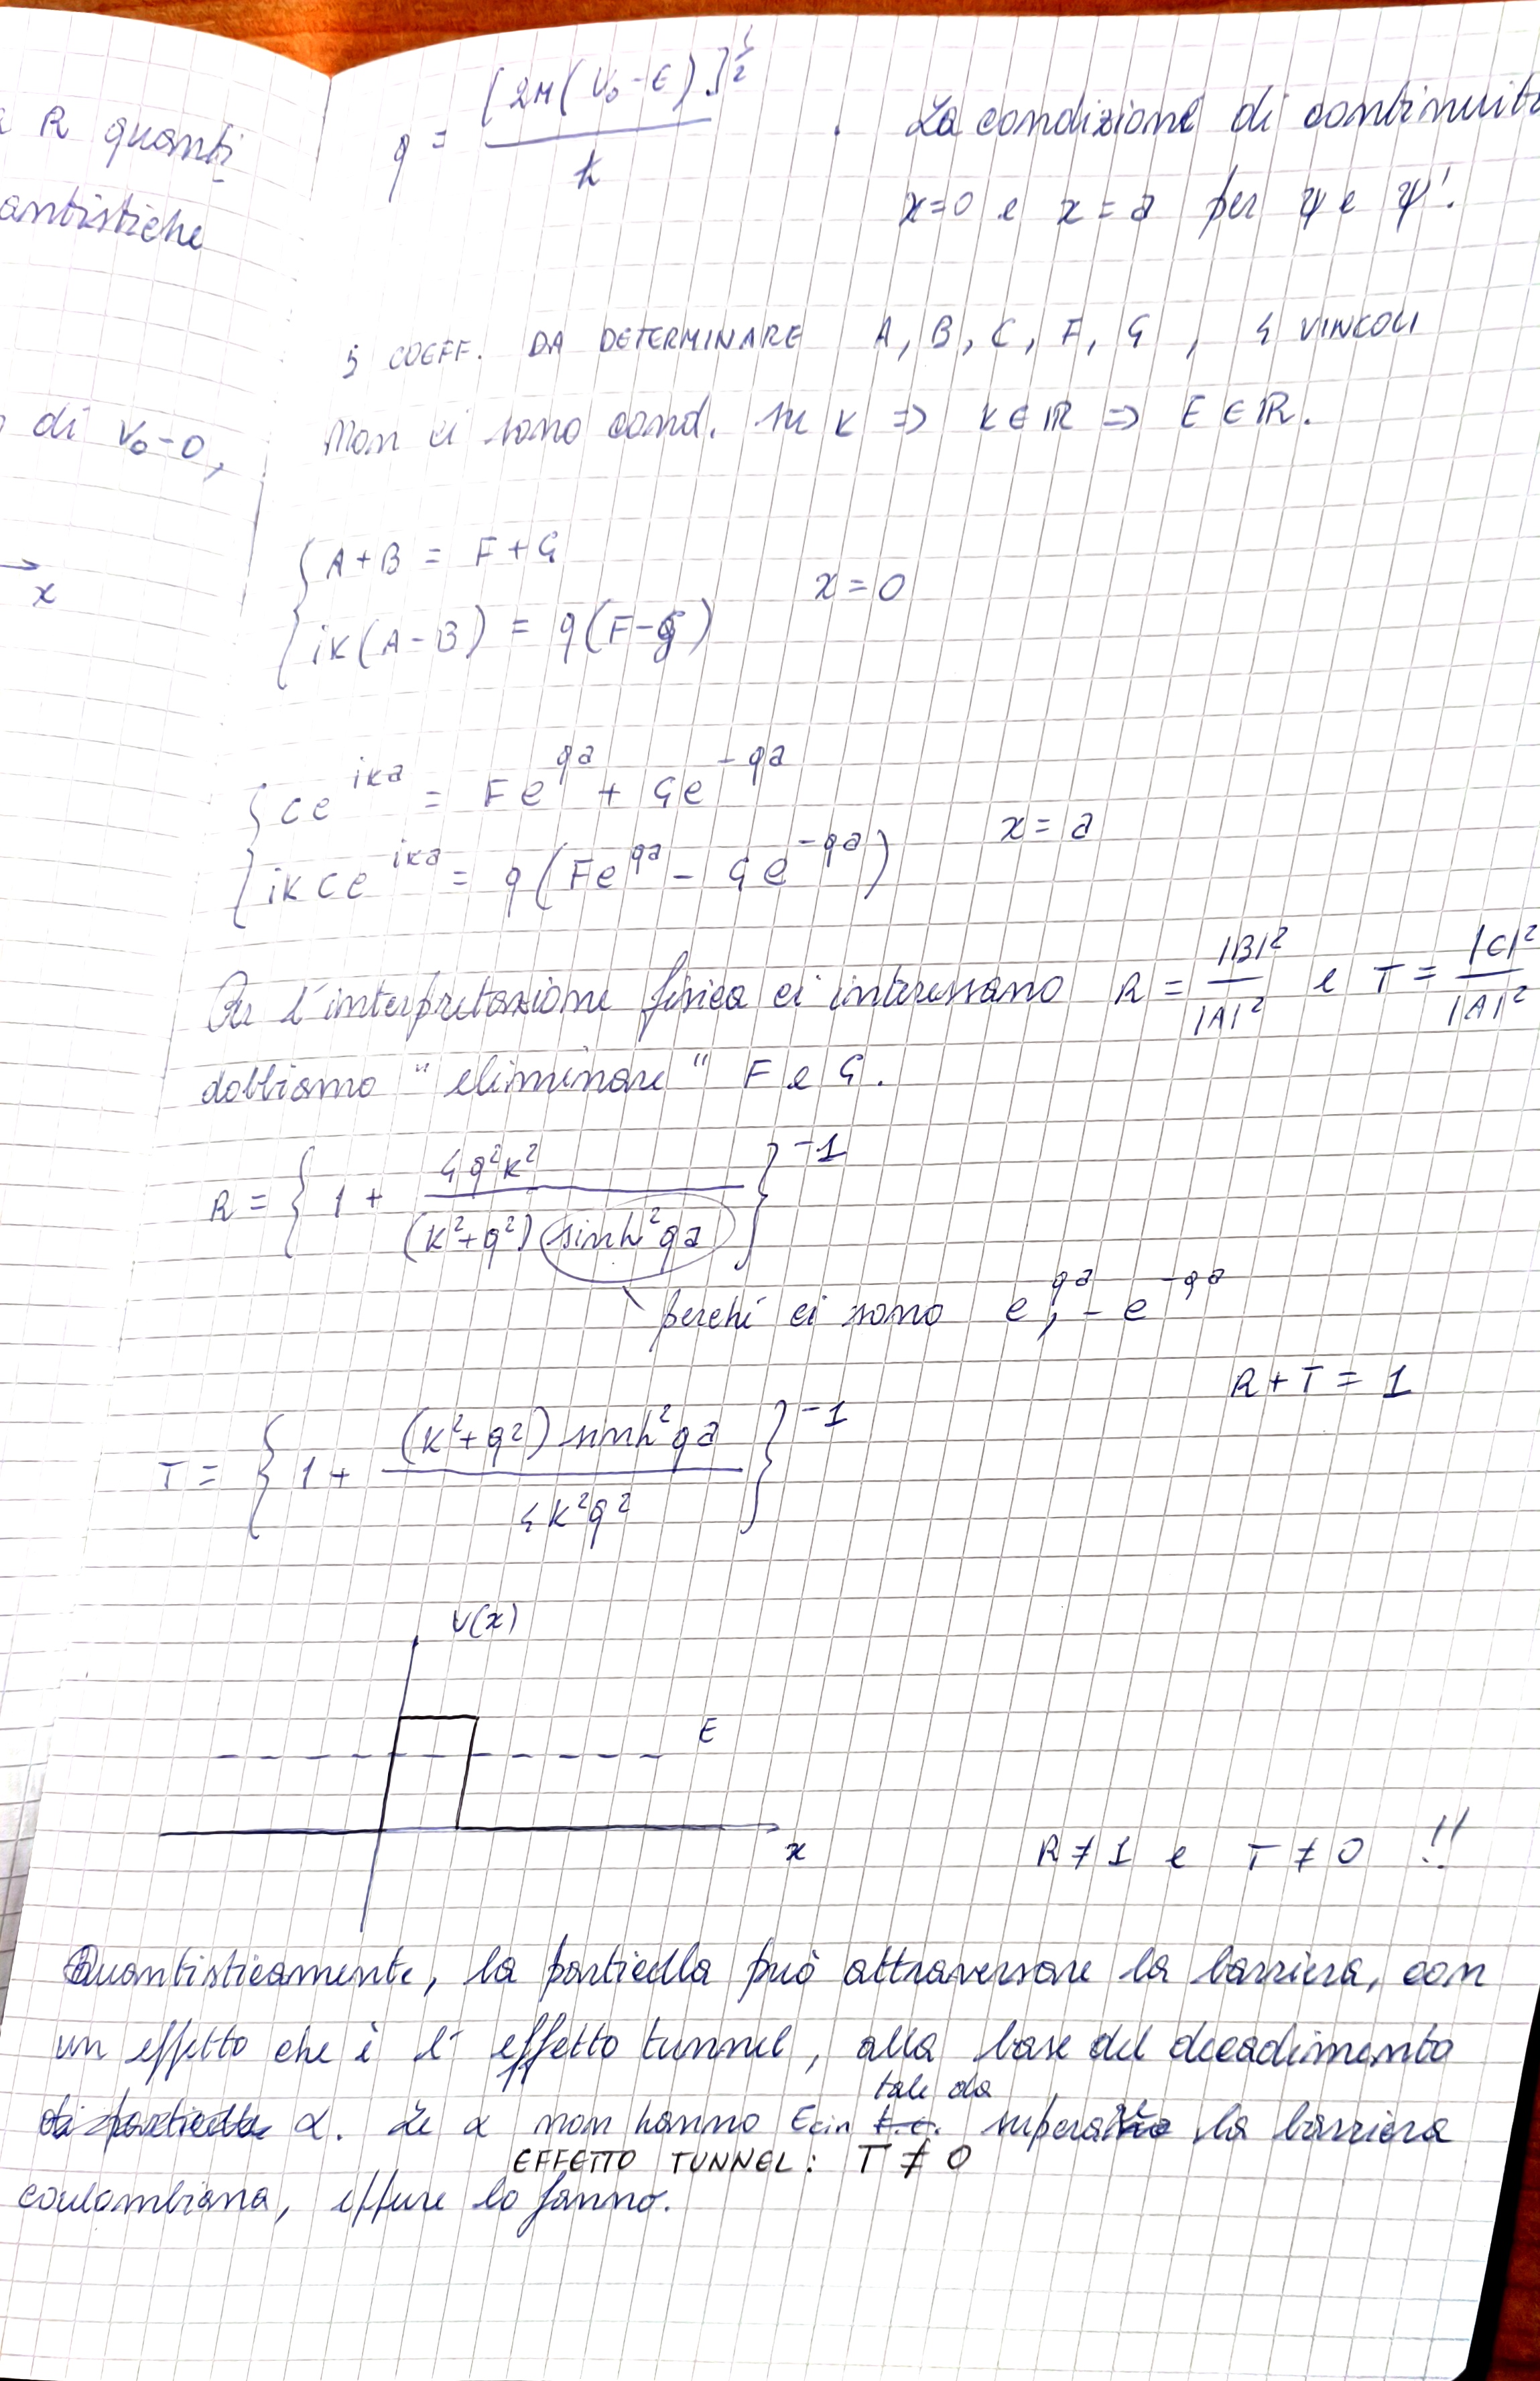 R quanti
antistiche
di V₀-0,
x
q = [2M(V₀-E)]^½ / ħ . La condizione di continuità
x=0 e x=a per ψ e ψ'.
5 COEFF. DA DETERMINARE A, B, C, F, G, 4 VINCOLI
Non ci sono cond. su k => k∈ℝ => E∈ℝ.
{ A+B = F+G
x=0
{ ik(A-B) = q(F-G)
{ Ce^{ika} = Fe^{qa} + Ge^{-qa}
x=a
{ ikCe^{ika} = q(Fe^{qa} - Ge^{-qa})
Per l'interpretazione fisica ci interessano R = |B|²/|A|² e T = |C|²/|A|²
dobbiamo "eliminare" F e G.
R = { 1 + 4q²k² / (k²+q²) sinh²qa }^{-1}
perché ci sono e^{qa}, -e^{-qa}
R+T = 1
T = { 1 + (k²+q²) sinh²qa / 4k²q² }^{-1}
V(x)
E
x
R≠1 e T≠0 !!
Quantisticamente, la particella può attraversare la barriera, con
un effetto che è l'effetto tunnel, alla base del decadimento
di particelle α. Le α non hanno Ecin t.c. tale da superare la barriera
EFFETTO TUNNEL: T≠0
coulombiana, eppure lo fanno.